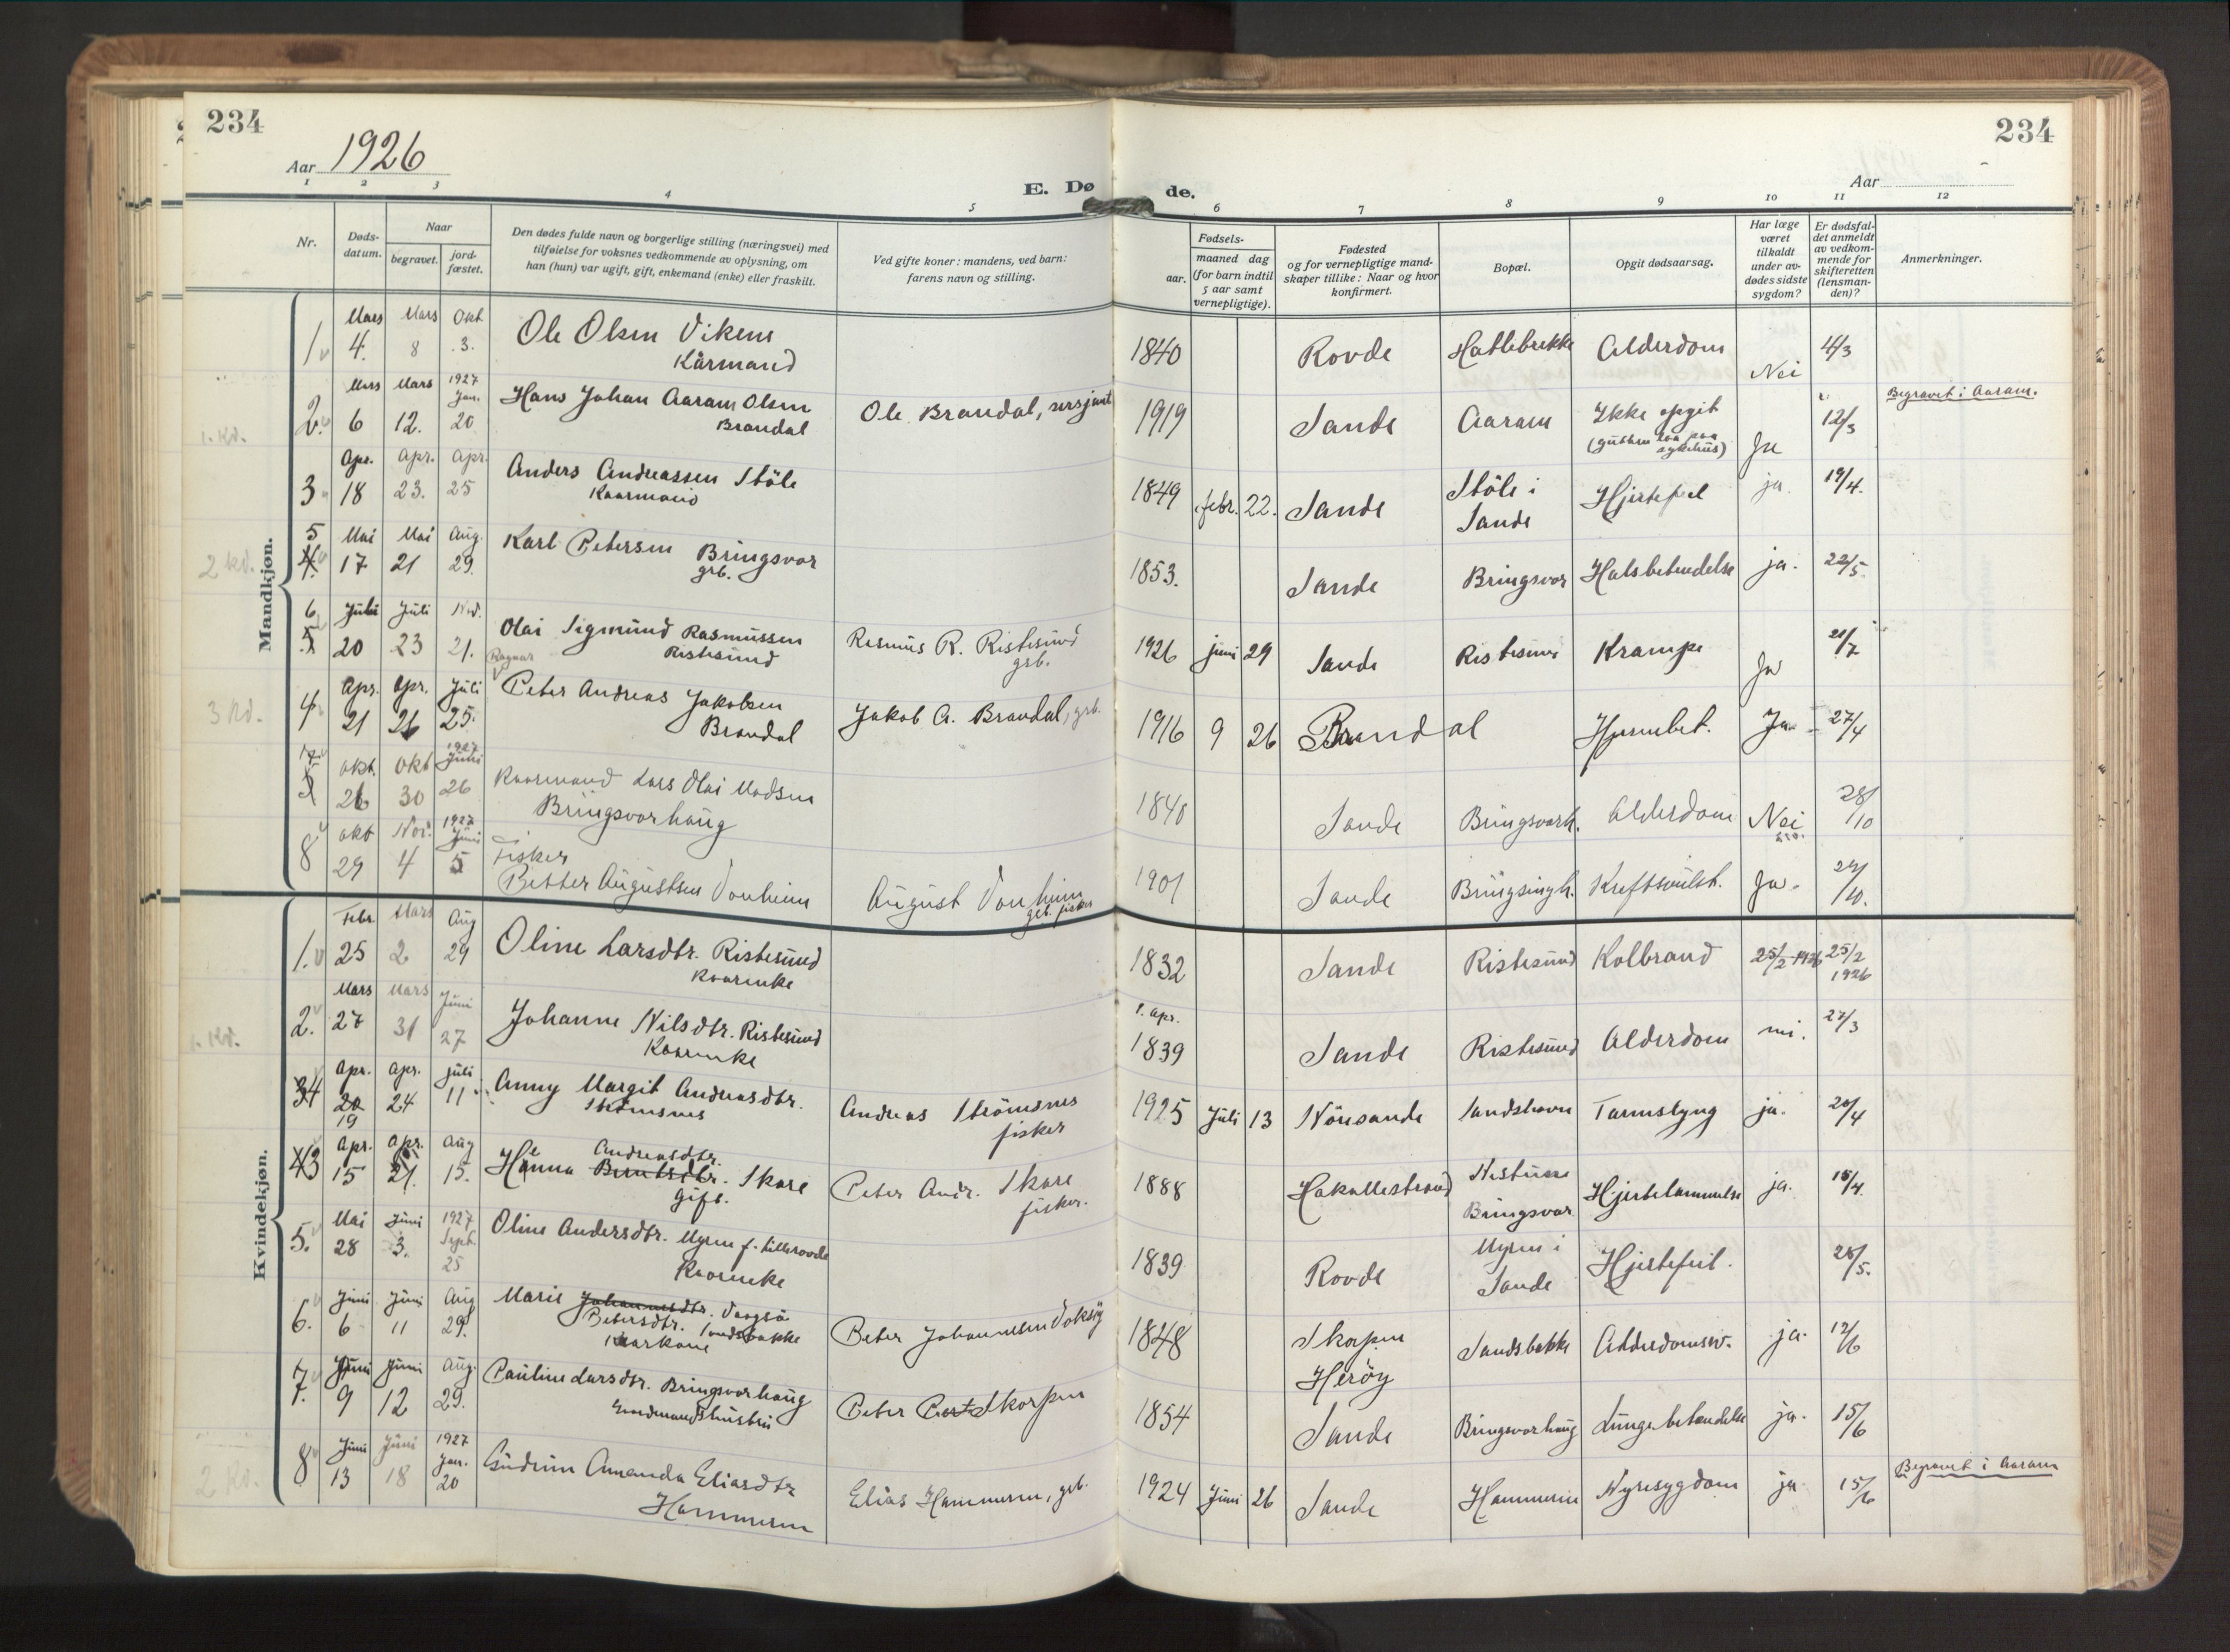 234
234
Aar 1926
Aar
E. Dø de.
1 2 3 4 5 6 7 8 9 10 11 12
Nr.
Døds-datum.
Naar
begravet.
jord-fæstet.
Den dødes fulde navn og borgerlige stilling (næringsvei) med
tilføielse for voksnes vedkommende av oplysning, om
han (hun) var ugift, gift, enkemand (enke) eller fraskilt.
Ved gifte koner: mandens, ved barn:
farens navn og stilling.
Fødsels-
aar.
maaned dag
(for barn indtil
5 aar samt
vernepligtige).
Fødested
og for vernepligtige mand-
skaper tillike: Naar og hvor
konfirmert.
Bopæl.
Opgit dødsaarsag.
Har læge
været
tilkaldt
under av-
dødes sidste
sygdom?
Er dødsfal-
det anmeldt
av vedkom-
mende for
skifteretten
(lensman-
den)?
Anmerkninger.
Mandkjøn.
1 Mars 4. Mars 8 Okt. 3. Ole Olsen Vikene 1840 Rovde Hatlebrekke Alderdom Nei 4/3
Kårmand
1. Kd.
2. Mars 6 Mars 12. 1927 Jan. 20 Hans Johan Aaram Olsen Ole Brandal, sersjant 1919 Sande Aaram Ikke opgit Ja 12/3 Begravet i Aaram.
Brandal (gutten laa paa sykehus)
3 Apr. 18 Apr. 23. Apr. 25 Anders Andreassen Støle 1849 febr. 22. Sande Støle i Sande Hjertefeil ja. 19/4.
Kaarmand
2 Kd.
5 4. Mai 17 Mai 21 Aug. 29. Karl Petersen Bringsvor 1853. Sande Bringsvor Halsbetendelse ja. 22/5.
grb.
6 5 Juli 20 Juli 23 Nov. 21. Olai Sigmund Rasmussen Rasmus R. Ristesund 1926 juni 29 Sande Ristesund Krampe Ja 21/7
Ragnar Ristesund grb.
3 Kd.
4 Apr. 21 Apr. 26 Juli 25. Peter Andreas Jakobsen Jakob A. Brandal, grb. 1916 9 26 Brandal Hjernebet. Ja 27/4
Brandal
7 okt. 26 okt 30 1927 Juni 26 Kaarmand Lars Olai Madsen 1840 Sande Bringsvorh. Alderdom Nei 28/10
Bringsvorhaug
8 okt 29 Nov. 4 1927 Juni 5 Fisker
Petter Augustsen Vonheim August Vonheim 1901 Sande Kreftsvulst. Ja. 29/10.
grb. fisker
Kvindekjøn.
1. Febr 25 Mars 2 Aug 29 Oline Larsdtr. Ristesund 1832 Sande Ristesund Kolbrand 25/2 1926 25/2 1926
Kaarenke
1. Kd.
2. Mars 27 Mars 31 Juni 27 Johanne Nilsdtr. Ristesund 1. Apr. 1839 Sande Ristesund Alderdom nei. 27/3
Kaarenke
34 Apr. 20 19 Apr. 24 juli 11 Anny Margit Andreasdtr. Andreas Strömsnes 1925 Juli 13 Nönsande Sandshavn Tarmslyng ja. 20/4
Strömsnes fisker
43 Apr. 15 Apr. 21. Aug 15. Hanna Berntsdtr. Andreasdtr. Skare Peter Andr. Skare 1888 Hakallestrand Bringsvor Hjertelammelse ja. 18/4.
Gift. fisker.
5. Mai 28 Juni 3. 1927 Sept 25 Oline Andersdtr. Myren f. Lillerovde 1839 Rovde Myren i Sande Hjertefeil. 28/5.
Kaarenke
6. Juni 6 Juni 11 Aug 29. Marie Johannesdtr. Vaagsö Peter Johannesen Voksöy 1848 Skorpen Herøy Sandsbakke Alderdomssv. ja. 12/6
Petersdtr. Sandsbakke
Kaarkone
7. Juni 9 Juni 12 Aug. 29. Pauline Larsdtr. Bringsvorhaug Peter Skorpen 1854 Sande Bringsvorhaug Lungebetændelse ja. 15/6
2 Kd.
8 Juni 13 Juni 18 1927 Jan. 20 Gudrun Amanda Eliasdtr Elias Hammeren, grb. 1924 Juni 26 Sande Hammeren Nyresygdom ja. 15/6 Begravet i Aaram
Hammeren